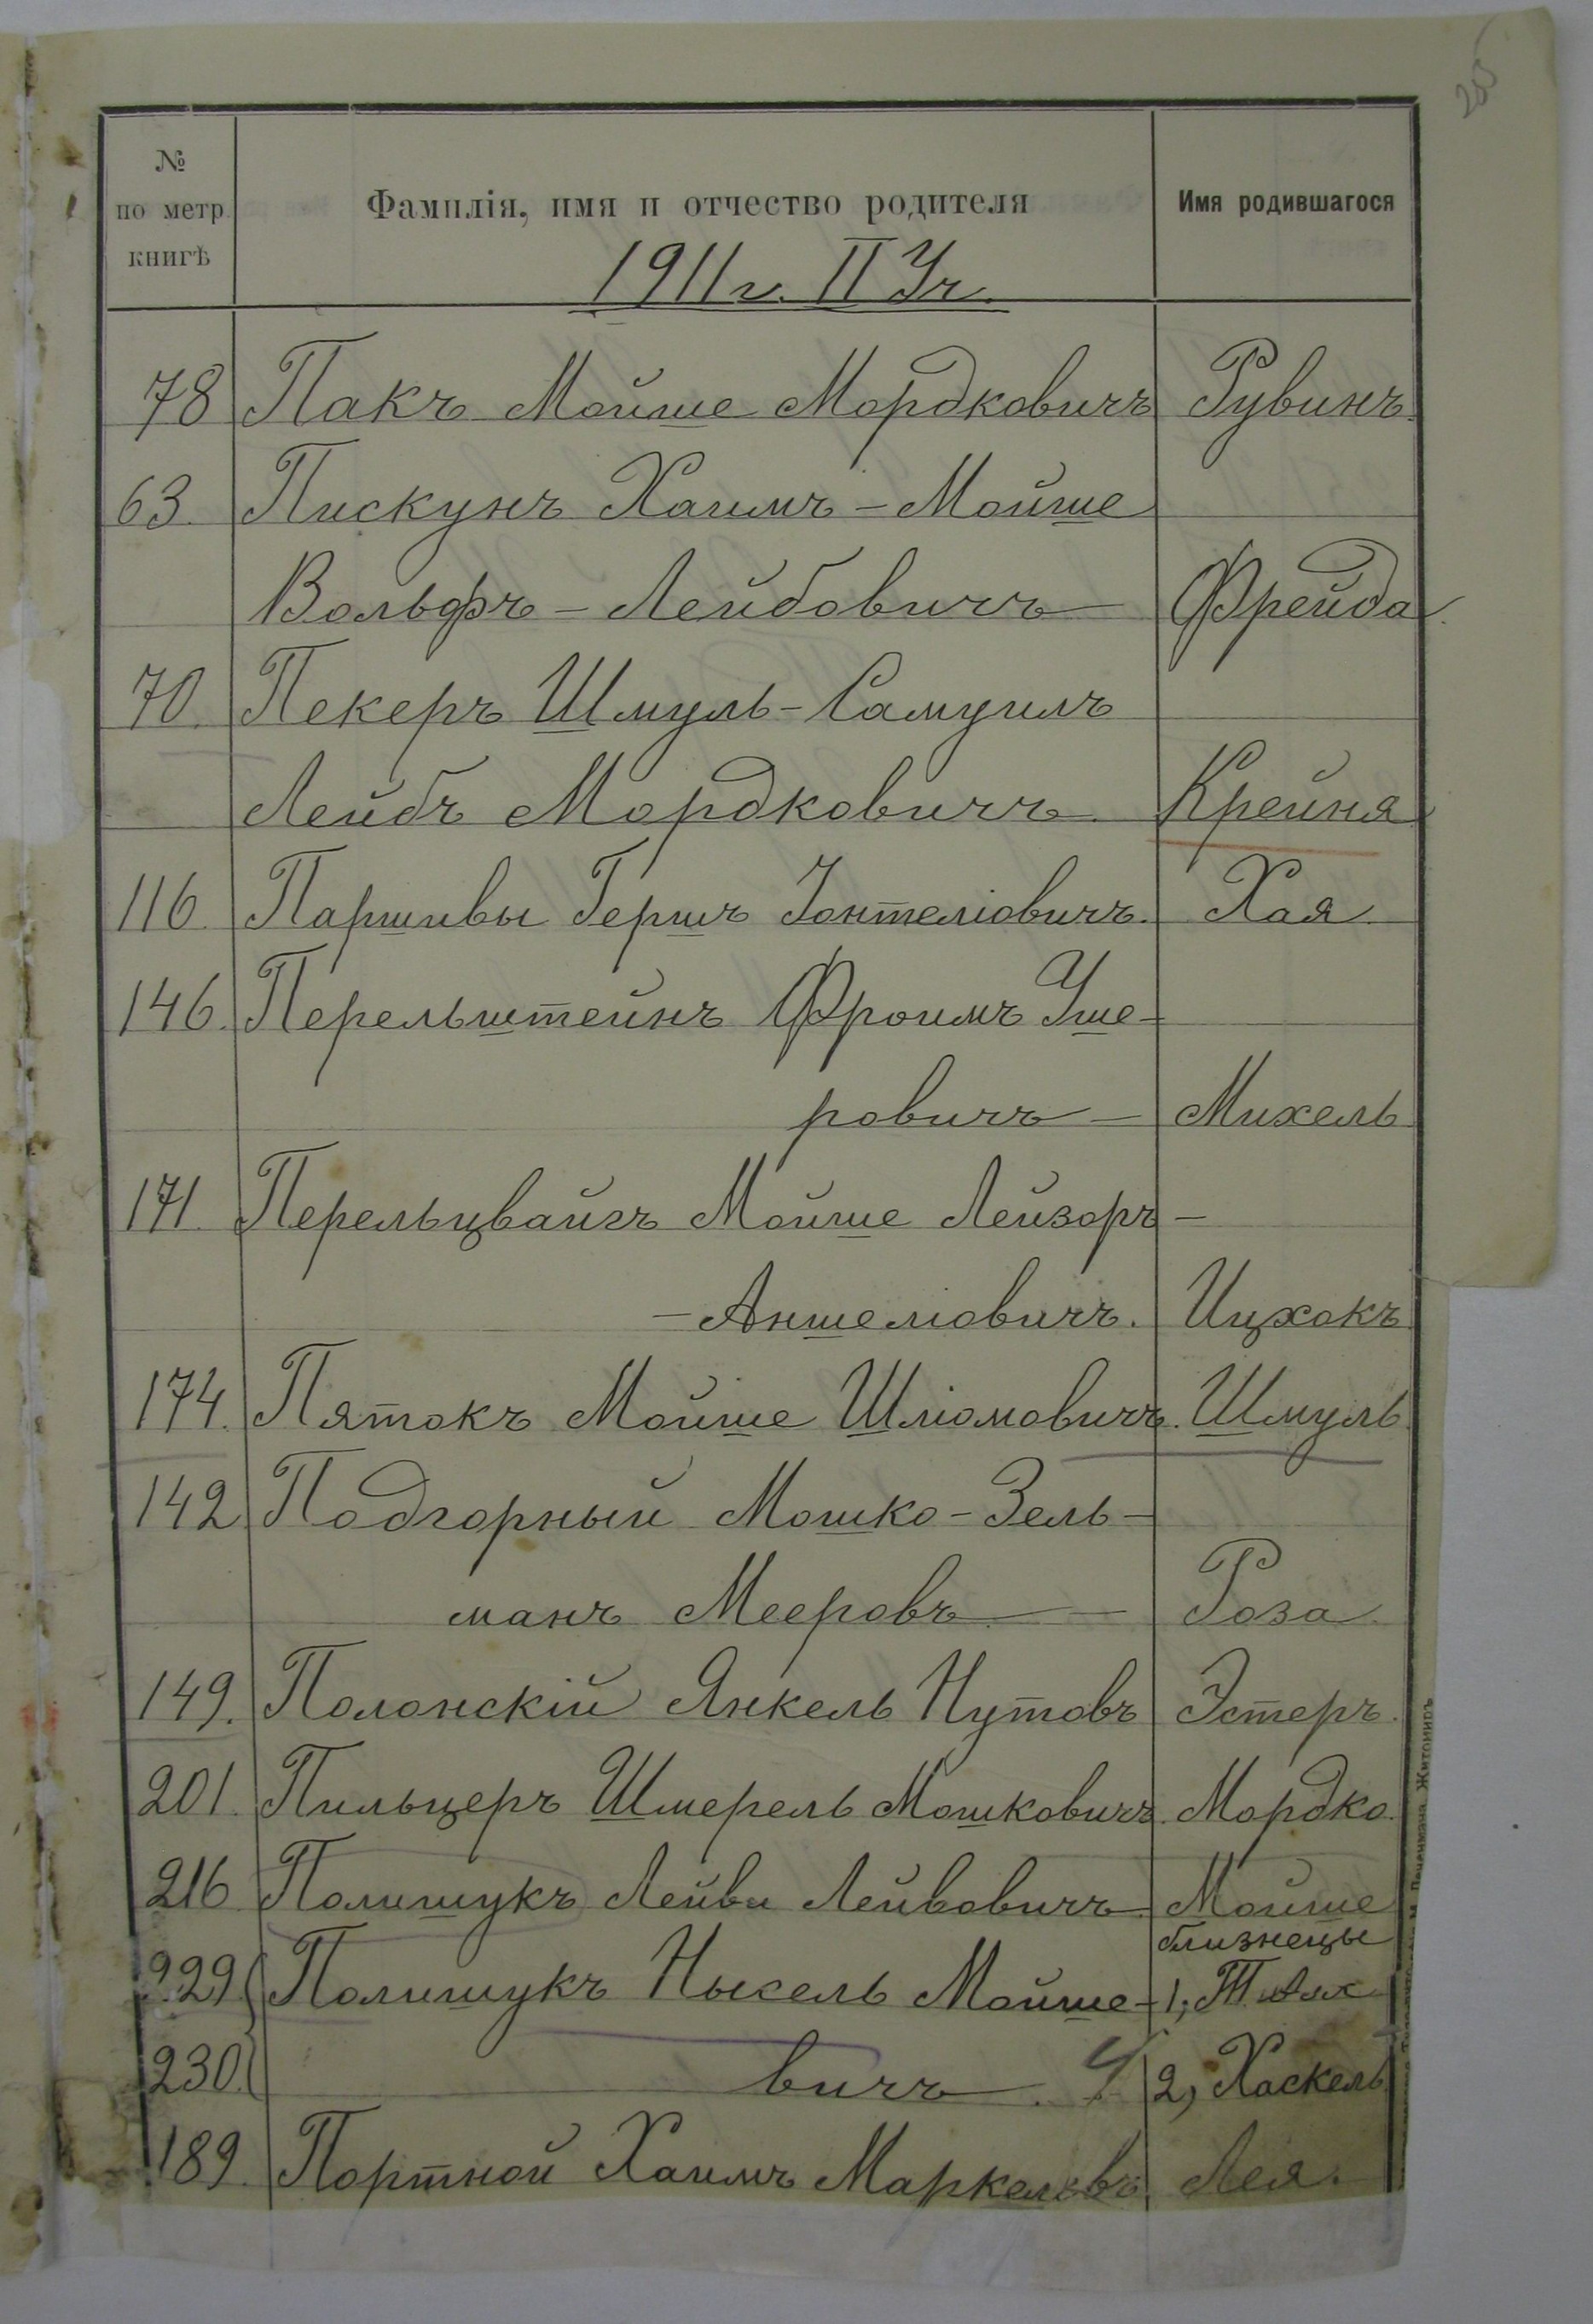 285
№ по метр. книгѣ
Фамилія, имя и отчество родителя
Имя родившагося
1911 г. II Уч.
78 Пакъ Мойше Мордковичъ Рувинъ.
63. Пискунъ Хаимъ - Мойше
Вольфъ - Лейбовичъ Фрейда
70. Пекеръ Шмуль - Самуилъ
Лейбъ Мордковичъ. Крейня
116. Паршивы Гершъ Іонтеліовичъ. Хая.
146. Перельштейнъ Фроимъ Уше-
ровичъ - Михель
171. Перельцвайгъ Мойше Лейзоръ -
- Аншеліовичъ. Ицхокъ
174. Пятокъ Мойше Шліомовичъ. Шмуль
142 Подгорный Мошко - Зель-
манъ Мееровъ - Роза.
149. Полонскій Янкель Нутовъ Эстеръ.
201. Пильцеръ Шмерель Мошковичъ. Мордко.
216 Полишукъ Лейви Лейвовичъ Мойше
близнецы
229 Полишукъ Нысель Мойше- 1,
230. вичъ. 2, Хаскель
189. Портной Хаимъ Лея.